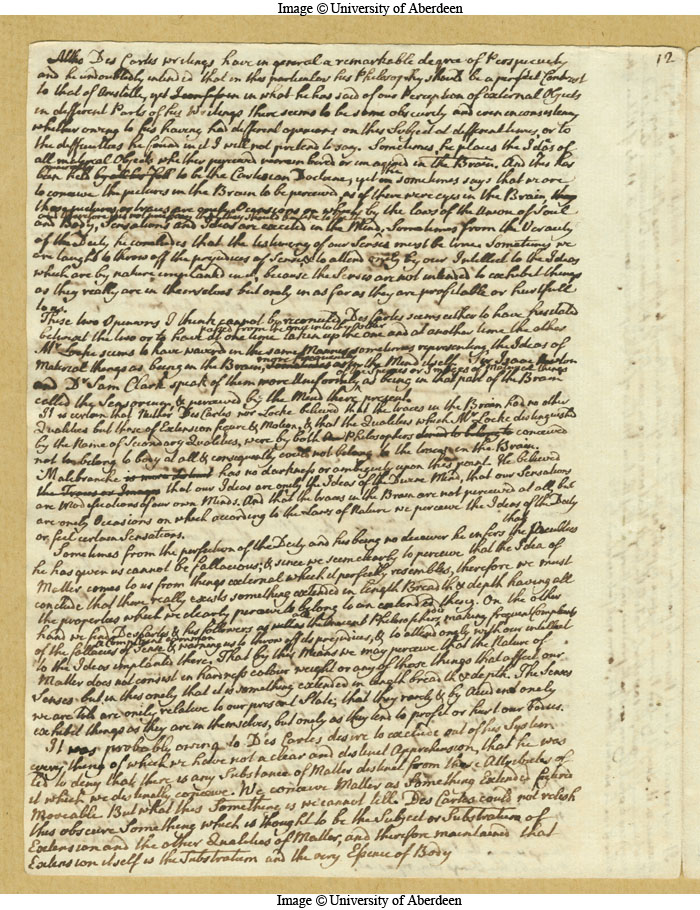 Image © University of Aberdeen
12
Altho Des Cartes writings have in general a remarkable degree of Perspicuity
and he undoubtedly intended that in this particular his Philosophy should be a perfect Contrast
to that of Aristotle, yet in what he has said of our Perception of external Objects
in different Parts of his Writings there seems to be some obscurity and even inconsistency
whether owing to his having had different opinions on this Subject at different times, or to
the difficulties he found in it I will not pretend to say. Sometimes, he places the Ideas of
all material Objects whether perceived remembered or imagined in the Brain. And this has
been held to be the Cartesian Doctrine, yet he sometimes says that we are
to conceive the pictures in the Brain to be perceived as if there were eyes in the Brain,
these pictures or traces are only Occasions on which by the laws of the Union of Soul
and Body, Sensations and Ideas are excited in the Mind, Sometimes from the Veracity
of the Deity he concludes that the testimony of our Senses must be true. Sometimes we
are taught to throw off the prejudices of Sense & to attend only by our Intellect to the Ideas
which are by nature implanted in it, because the Senses are not intended to exhibit things
as they really are in themselves but only in as far as they are profitable or hurtfull
to us.
These two Opinions I think cannot be reconciled, Des Cartes seems either to have hesitated
passed from the one into the other
betwixt the two or to have at one time taken up the one and at another time the other
Mr Locke seems to have wavered in the same Manner sometimes representing the Ideas of
Material things as being in the Brain, more frequently in the Mind itself. Sir Isaac Newton
of the species or Images of Material things
and Dr Sam Clark speak of them more Uniformly as being in that part of the Brain
called the Sensorium & perceived by the Mind there present.
It is certain that Neither Des Cartes nor Locke believed that the traces in the Brain had no other
Qualities but those of Extension figure & Motion, & that the Qualities which Mr Locke distinguished
by the Name of Secondary Qualities, were by both Philosophers conceived
not to belong to body at all & consequently could not belong to the traces in the Brain.
Malebranche has no darkness or ambiguity upon this point. He believed
that our Ideas are only the Ideas of the Divine Mind, that our Sensations
are Modifications of our own Minds. And that the traces in the Brain are not perceived at all, but
are only Occasions on which according to the Laws of Nature we perceive the Ideas of the Deity
or feel certain Sensations.
Sometimes from the perfection of the Deity and his being no deceiver he infers that the faculties
he has given us cannot be fallacious; & since we seem clearly to perceive that the Idea of
Matter comes to us from things external which it perfectly resembles, therefore we must
conclude that there really exists something extended in length Breadth & depth having all
the properties which we clearly perceive to belong to an extended thing. On the other
hand we find Des Cartes & his followers as well as the ancient Philosophers, making frequent Complaints
of the fallacies of Sense & warning us to throw off its prejudices, & to attend only with our intellect
to the Ideas implanted there. That by this Means we may perceive that the Nature of
Matter does not consist in hardness colour weight or any of those things that affect our
Senses. but in this onely that it is something extended in length breadth & depth. The Senses
we are told are only relative to our present State; that they rarely & by Accident onely
exhibit things as they are in themselves, but only as they tend to profit or hurt our bodies.
It was probably owing to Des Cartes desire to exclude out of his System
every thing of which we have not a clear and distinct Apprehension, that he was
led to deny that there is any Substance of Matter distinct from those Attributes of
it which we distinctly conceive. We conceive Matter as Something Extended figured
Moveable. But what this Something is we cannot tell. Des Cartes could not relish
this obscure Something which is thought to be the Subject or Substratum of
Extension and the other Qualities of Matter, and therefore maintained that
Extension itself is the Substratum and the very Essence of Body
Image © University of Aberdeen